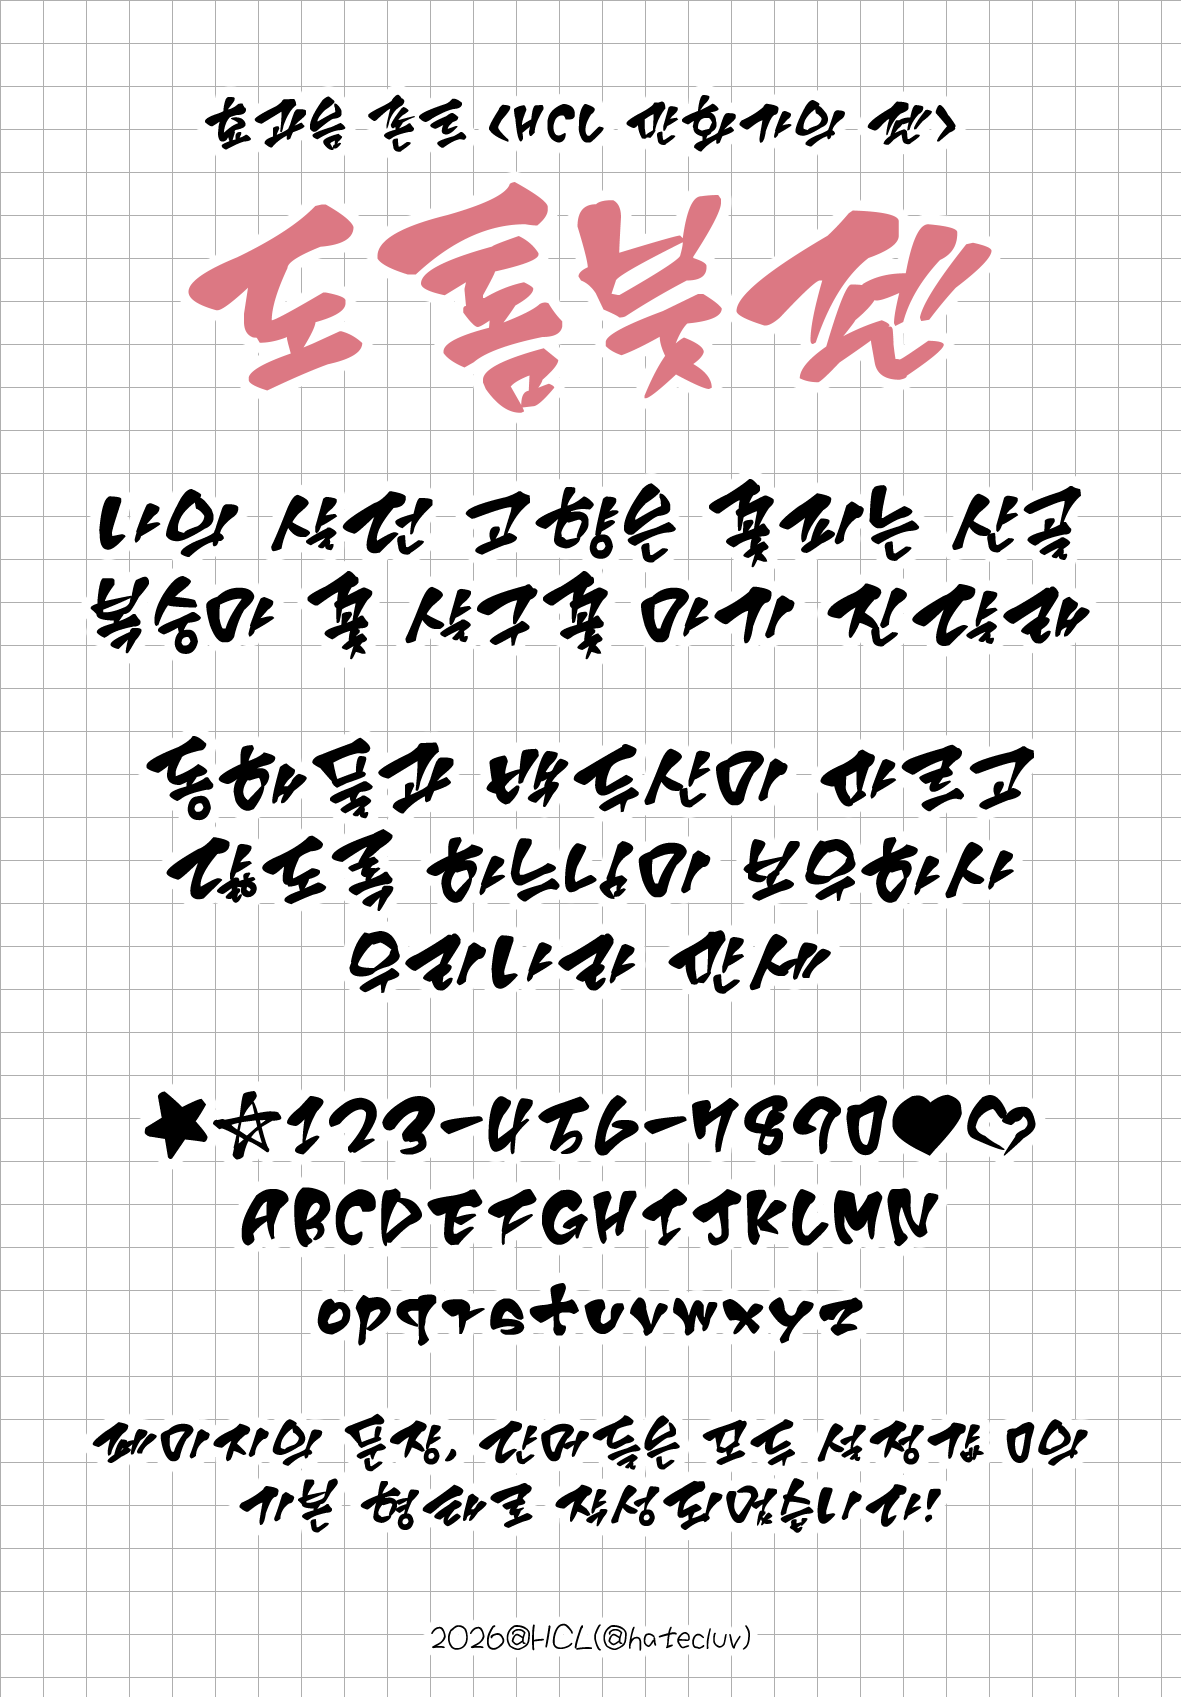 효과음 폰트 <HCL 만화가의 펜>
도톰붓펜
나의 살던 고향은 꽃피는 산골
복숭아 꽃 살구꽃 아기 진달래
동해물과 백두산이 마르고
닳도록 하느님이 보우하사
우리나라 만세
★☆123-456-7890♥♡
ABCDEFGHIJKLMN
opqrstuvwxyz
페이지의 문장, 단어들은 모두 설정값 0의
기본 형태로 작성되었습니다!
2026@HCL(@hatecluv)